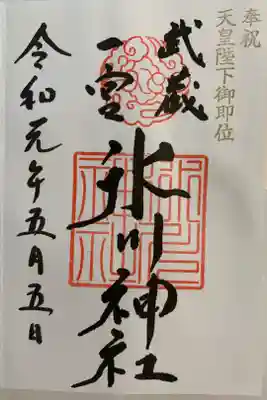 奉祝
天皇陛下御即位
武蔵
一宮
氷川神社
令和元年五月五日